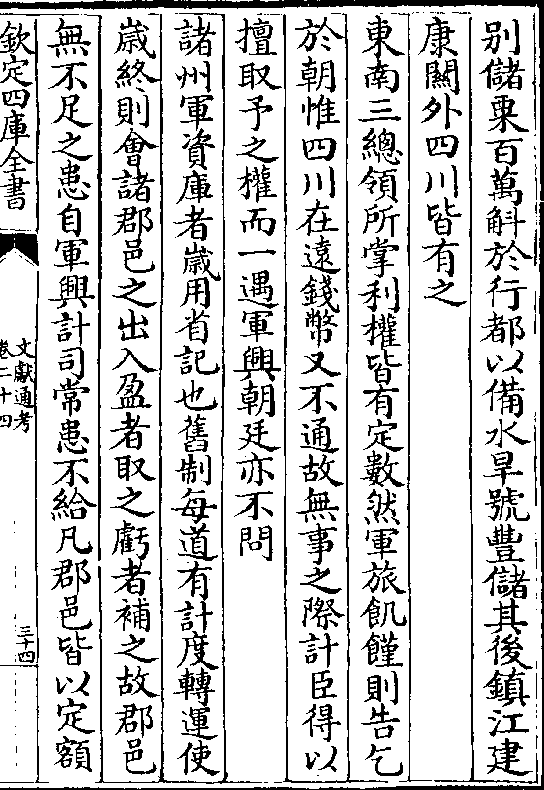 别儲粟百萬斛於行都以備水旱號豐儲其後鎮江建
康關外四川皆有之
東南三總領所掌利權皆有定數然軍旅飢饉則告乞
於朝惟四川在遠錢幣又不通故無事之際計臣得以
擅取予之權而一遇軍興朝廷亦不問
諸州軍資庫者歳用省記也舊制每道有計度轉運使
歳終則會諸郡邑之出入盈者取之虧者補之故郡邑
無不足之患自軍興計司常患不給凡郡邑皆以定額
欽定四庫全書
文獻通考
卷二十四
三十四